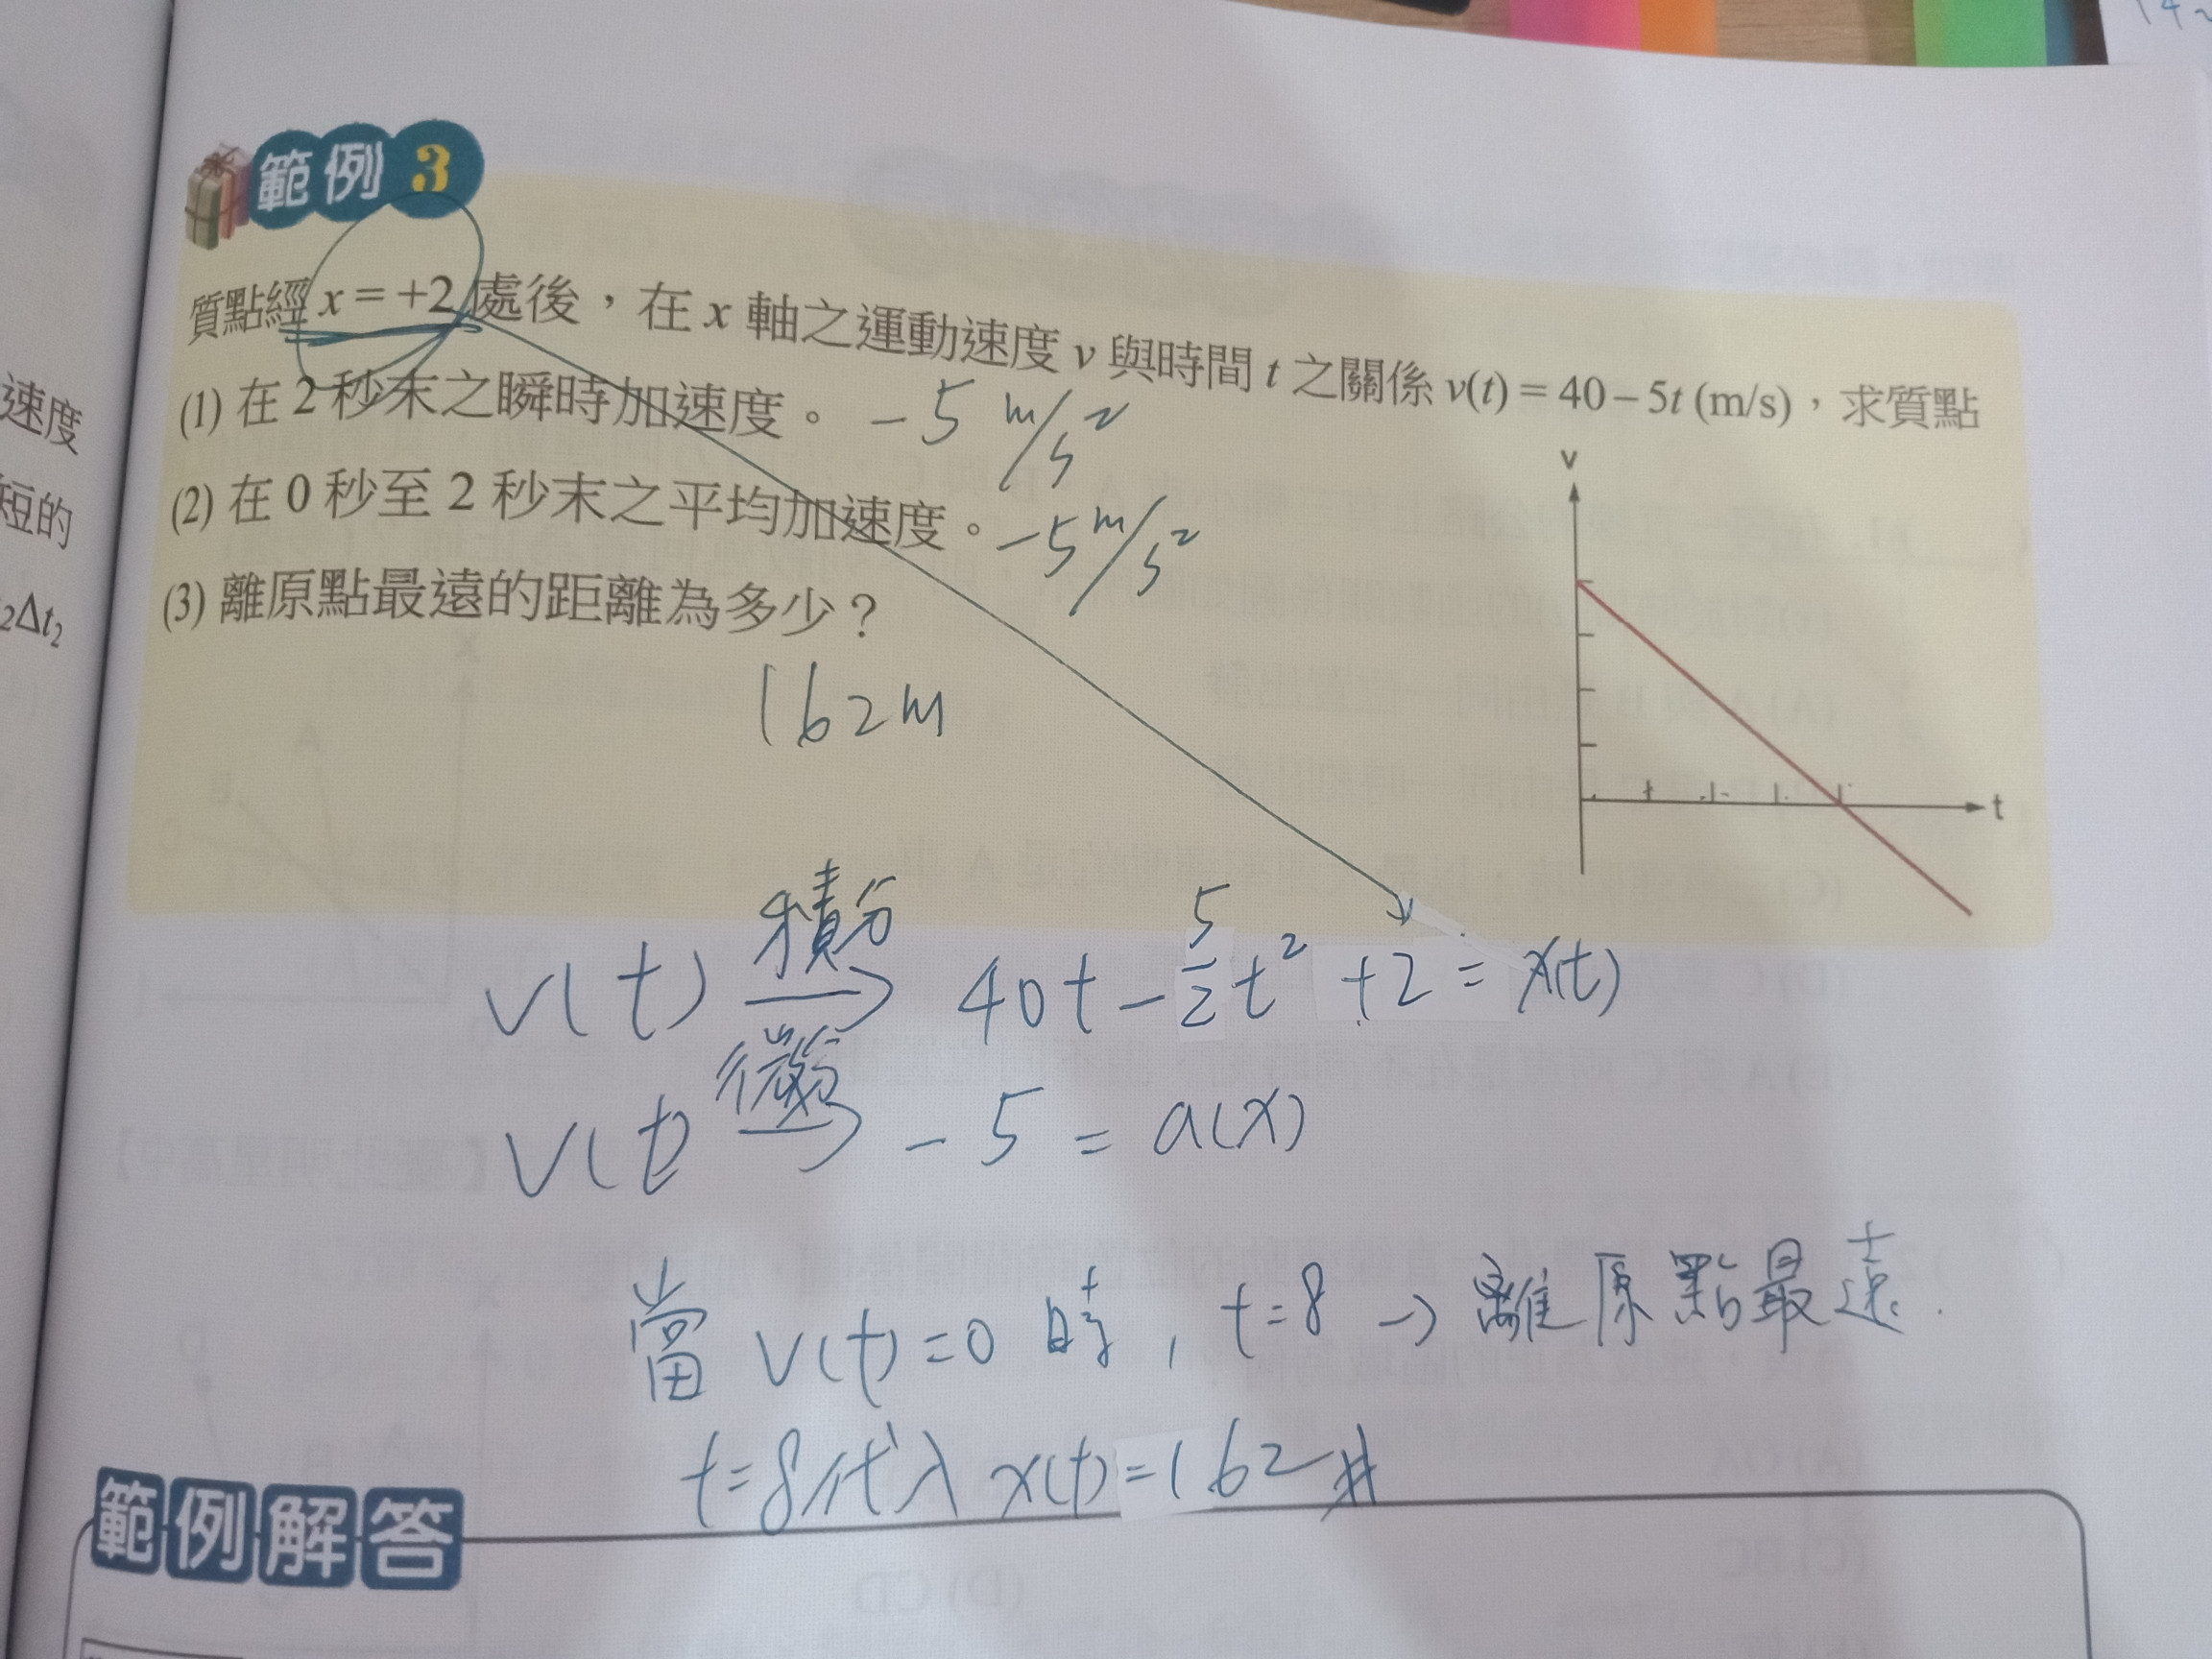 範例 3
質點經 x = +2 處後，在 x 軸之運動速度 v 與時間 t 之關係 v(t) = 40 – 5t (m/s)，求質點
(1) 在 2 秒末之瞬時加速度。 -5 m/s²
(2) 在 0 秒至 2 秒末之平均加速度。 -5 m/s²
(3) 離原點最遠的距離為多少？
162m
v
t
速度
短的
₂Δt₂
積分
v(t) → 40t - 5/2 t² + 2 = x(t)
微分
v(t) → -5 = a(x)
當 v(t) = 0 時, t = 8 → 離原點最遠.
t = 8 代入 x(t) = 162 #
範例解答